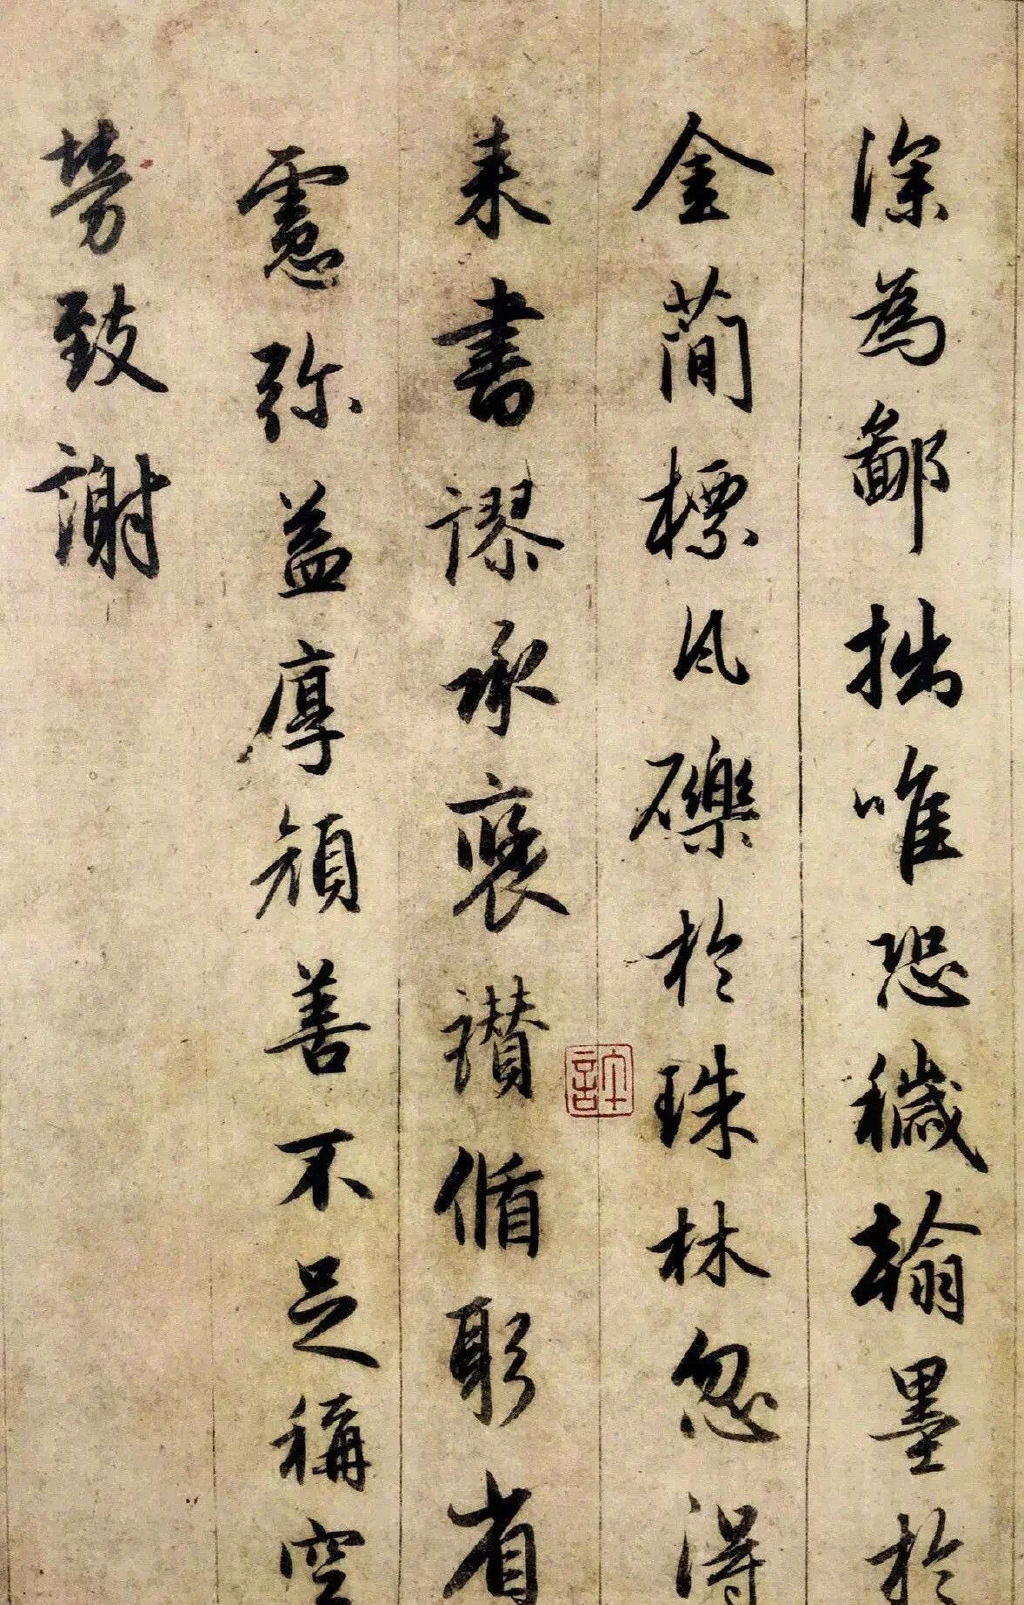 深為鄙拙唯恐穢翰墨於
金蕳標風礫於珠林忽得
来書謬承褒讃循躬省
慮弥益厚顔善不足稱空
勞致謝
許